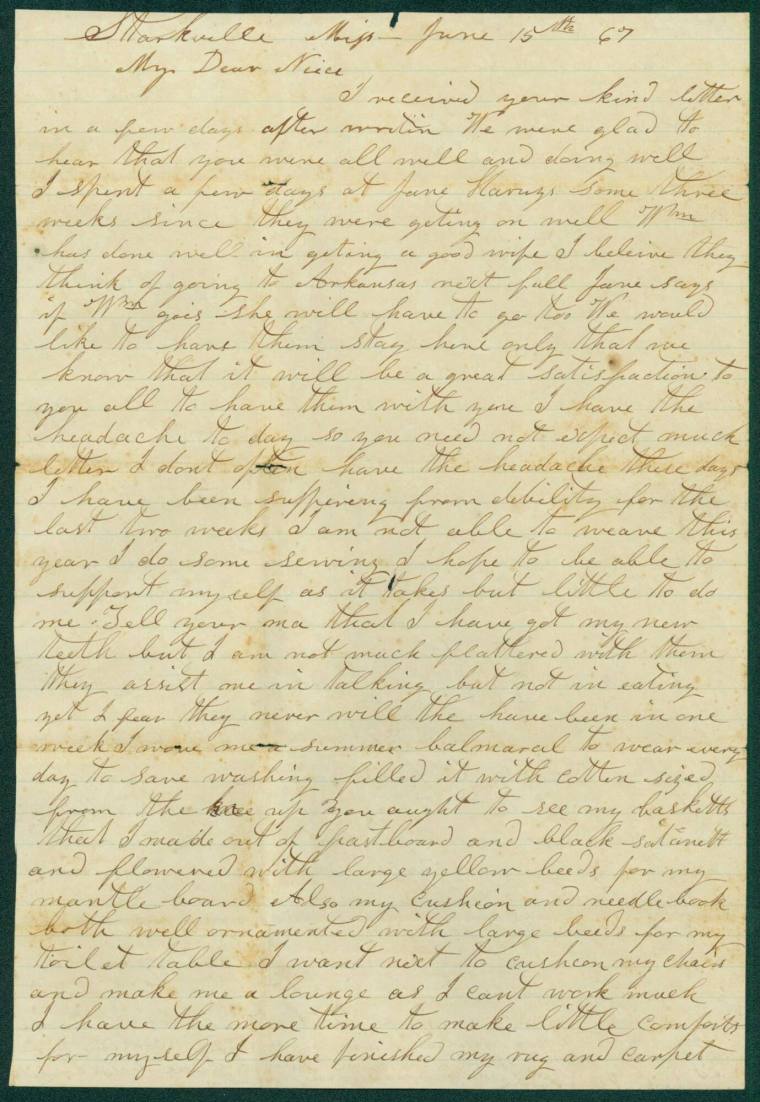 Starkville Miss - June 15th 67
My Dear Niece
I received your kind letter
in a few days after writin We were glad to
hear that you were all well and doing well
I spent a few days at Jane some three
weeks since they were geting on well Wm
has done well in geting a good wife I beleive they
think of going to Arkansas next fall Jane says
if Wm goes she will have to go too We would
like to have them stay here only that we
know that it will be a great satisfaction to
you all to have them with you I have the
headache to day so you need not expect much
letter I dont often have the headache these days
I have been suffering from debility for the
last two weeks I am not able to weave this
year I do some sewing I hope to be able to
support myself as it takes but little to do
me. Tell your ma that I have got my new
teeth but I am not much flattered with them
they assist me in talking but not in eating
yet I fear they never will the have been in one
week I wove me a summer balmaral to wear every
day to save washing filled it with cotten sized
from the knee up you aught to see my basketts
that I made out of pastboard and black satinett
and flowered with large yellow beeds for my
mantle board Also my cushion and needlebook
both well ornamented with large beeds for my
toilet table I want next to cusheon my chair
and make me a lounge as I cant work much
I have the more time to make little comforts
for myself I have finished my rug and carpet